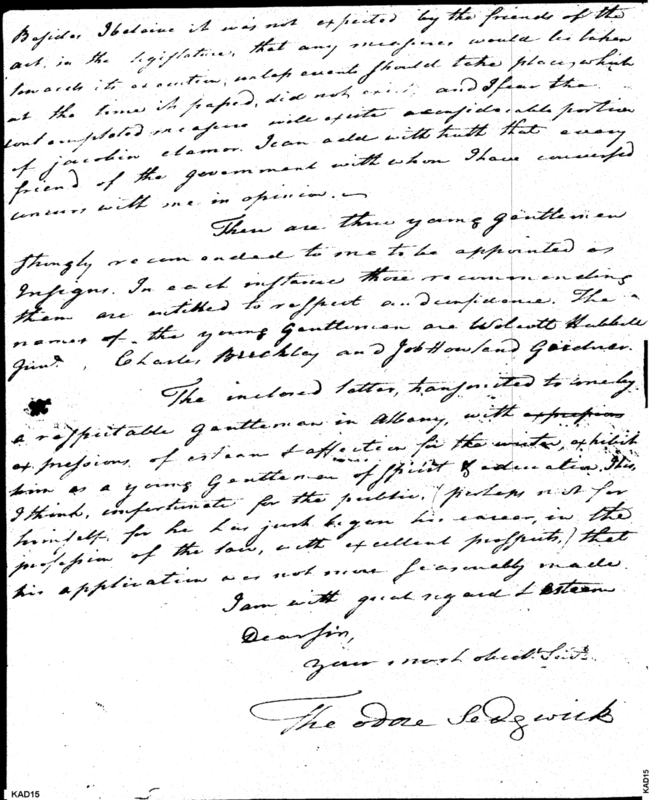 Besides I beleive it was not expected by the friends of the
act, in the legislature, that any measures would be taken
towards its execution, unless events should take place, which
at the time it passed, did not exist, and I fear the
contemplated measure will excite a considerable portion
of jacobin clamor. I can add with truth that every
friend of the government with whom I have conversed
concurs with me in opinion.
There are three young gentlemen
strongly recommended to me to be appointed as
Ensigns. In each instance those recommending
them are entitled to respect and confidence. The
names of the young Gentlemen are Wolcott Hubbell
Junr., Charles Bleckley and Job Howland Gardner.
The inclosed letter, transmitted to me by
a respectable gentleman in Albany, with expressions
expressions of esteem & affection for the writer, exhibit
him as a young Gentleman of spirit & education. It is,
I think, unfortunate for the public, (perhaps not for
himself, for he has just began his career, in the
profession of the law, with excellent prospects,) that
his application was not more seasonably made.
I am with great regard & esteem
Dear Sir,
your most obedt. Servt.
Theodore Sedgwick
KAD15
KAD15